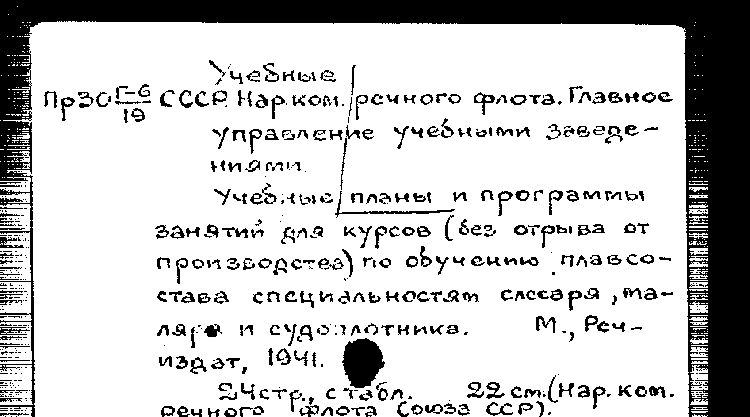 Учебные
Пр30 Г-6/19 СССР. Нар.ком. речного флота. Главное
управление учебными заведе-
ниями.
Учебные планы и программы
занятий для курсов (без отрыва от
производства) по обучению плавсо-
става специальностям слесаря, ма-
ляра и судоплотника. М., Реч-
издат, 1941.
24стр., с табл. 22 см. (Нар. ком.
речного флота Союза ССР).